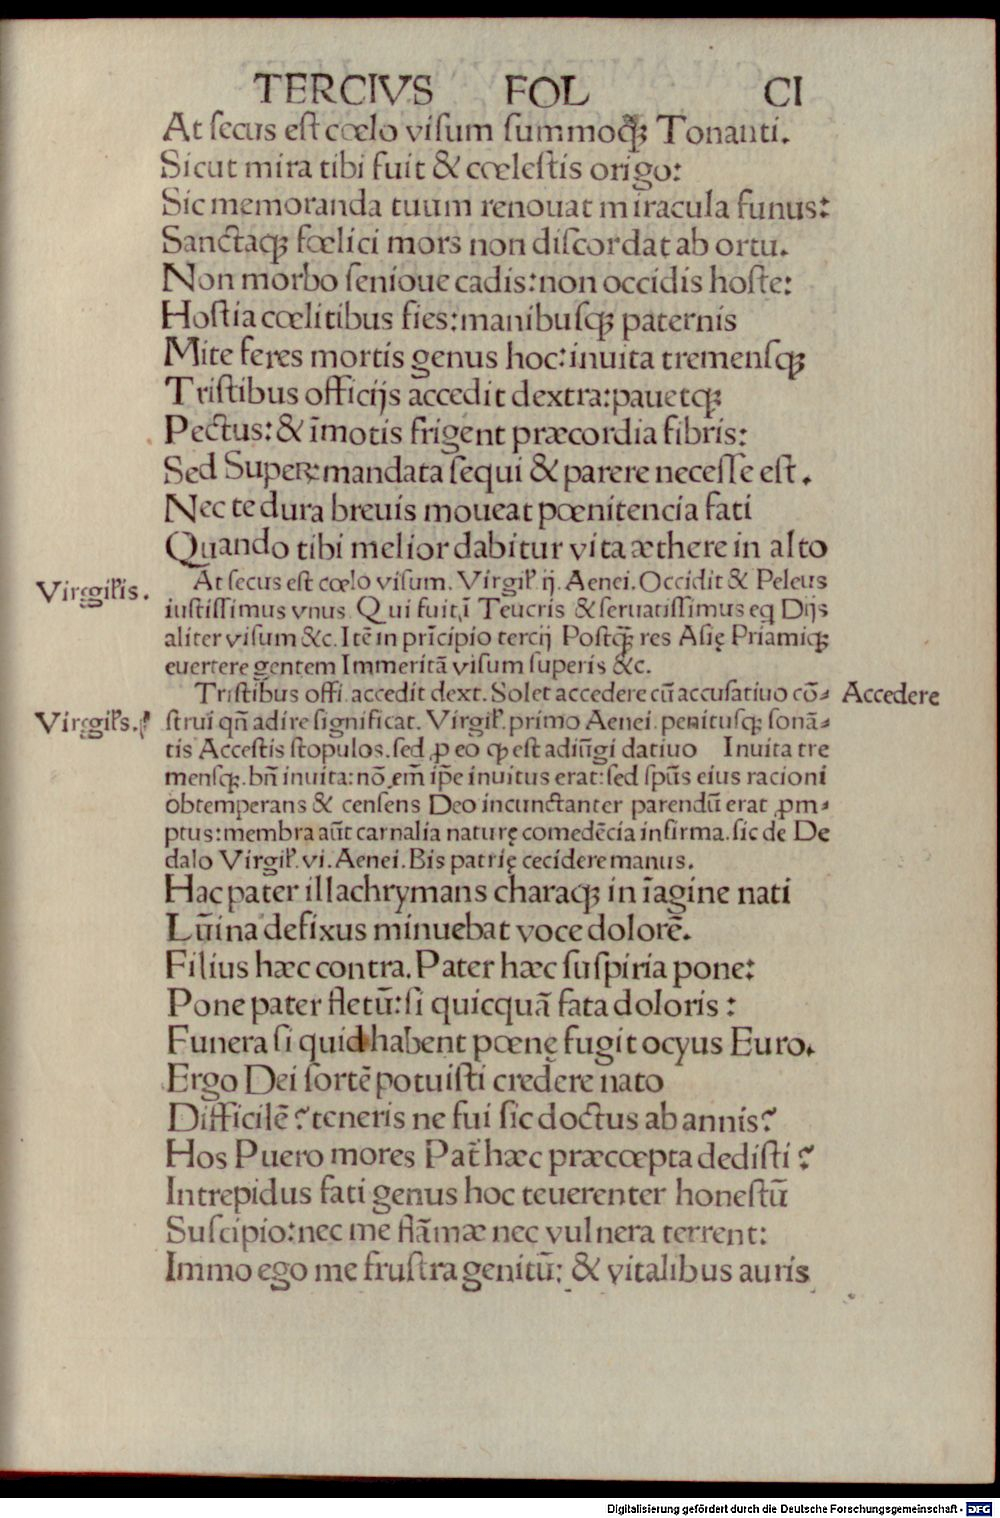 TERCIVS FOL CI
At secus est cœlo visum summoqꝫ Tonanti.
Sicut mira tibi fuit & cœlestis origo:
Sic memoranda tuum renouat miracula funus:
Sanctaqꝫ fœlici mors non discordat ab ortu.
Non morbo senioue cadis: non occidis hoste:
Hostia cœlitibus fies: manibusqꝫ paternis
Mite feres mortis genus hoc: inuita tremensqꝫ
Tristibus officijs accedit dextra: pauetqꝫ
Pectus: & īmotis frigent præcordia fibris:
Sed Superꝝ: mandata sequi & parere necesse est.
Nec te dura breuis moueat pœnitencia fati
Quando tibi melior dabitur vita æthere in alto
At secus est cœlo visum. Virgil'. ij. Aenei. Occidit & Peleus
Virgil'is.
iustissimus vnus Qui fuit ī Teucris & seruatissimus eq Dijs
aliter visum &c. Itē in prīcipio tercij Postqꝫ̄ res Asię Priamiqꝫ
euertere gentem Immeritā visum superis &c.
Tristibus offi. accedit dext. Solet accedere cū accusatiuo cō-
Accedere
Virgil's.
strui qn̄ adire significat. Virgil'. primo Aenei. penitusqꝫ sonā-
tis Accestis stopulos. sed ꝓ eo ꝙ est adiūgi datiuo Inuita tre
mensqꝫ. bn̄ inuita: nō em̄ ip̄e inuitus erat: sed spūs eius racioni
obtemperans & censens Deo incunctanter parendū erat ꝓm-
ptus: membra aūt carnalia naturę comedēcia infirma. sic de De
dalo Virgil'. vi. Aenei. Bis patrię cecidere manus.
Hac pater illachrymans charaqꝫ in īagine nati
Lūina defixus minuebat voce dolorē.
Filius hæc contra. Pater hæc suspiria pone:
Pone pater fletū: si quicquā fata doloris:
Funera si quid habent pœnę fugit ocyus Euro.
Ergo Dei sortē potuisti credere nato
Difficilē? teneris ne fui sic doctus ab annis?
Hos Puero mores Pat̄ hæc præcœpta dedisti?
Intrepidus fati genus hoc teuerenter honestū
Suscipio: nec me flāmæ nec vulnera terrent:
Immo ego me frustra genitū: & vitalibus auris
Digitalisierung gefördert durch die Deutsche Forschungsgemeinschaft - DFG